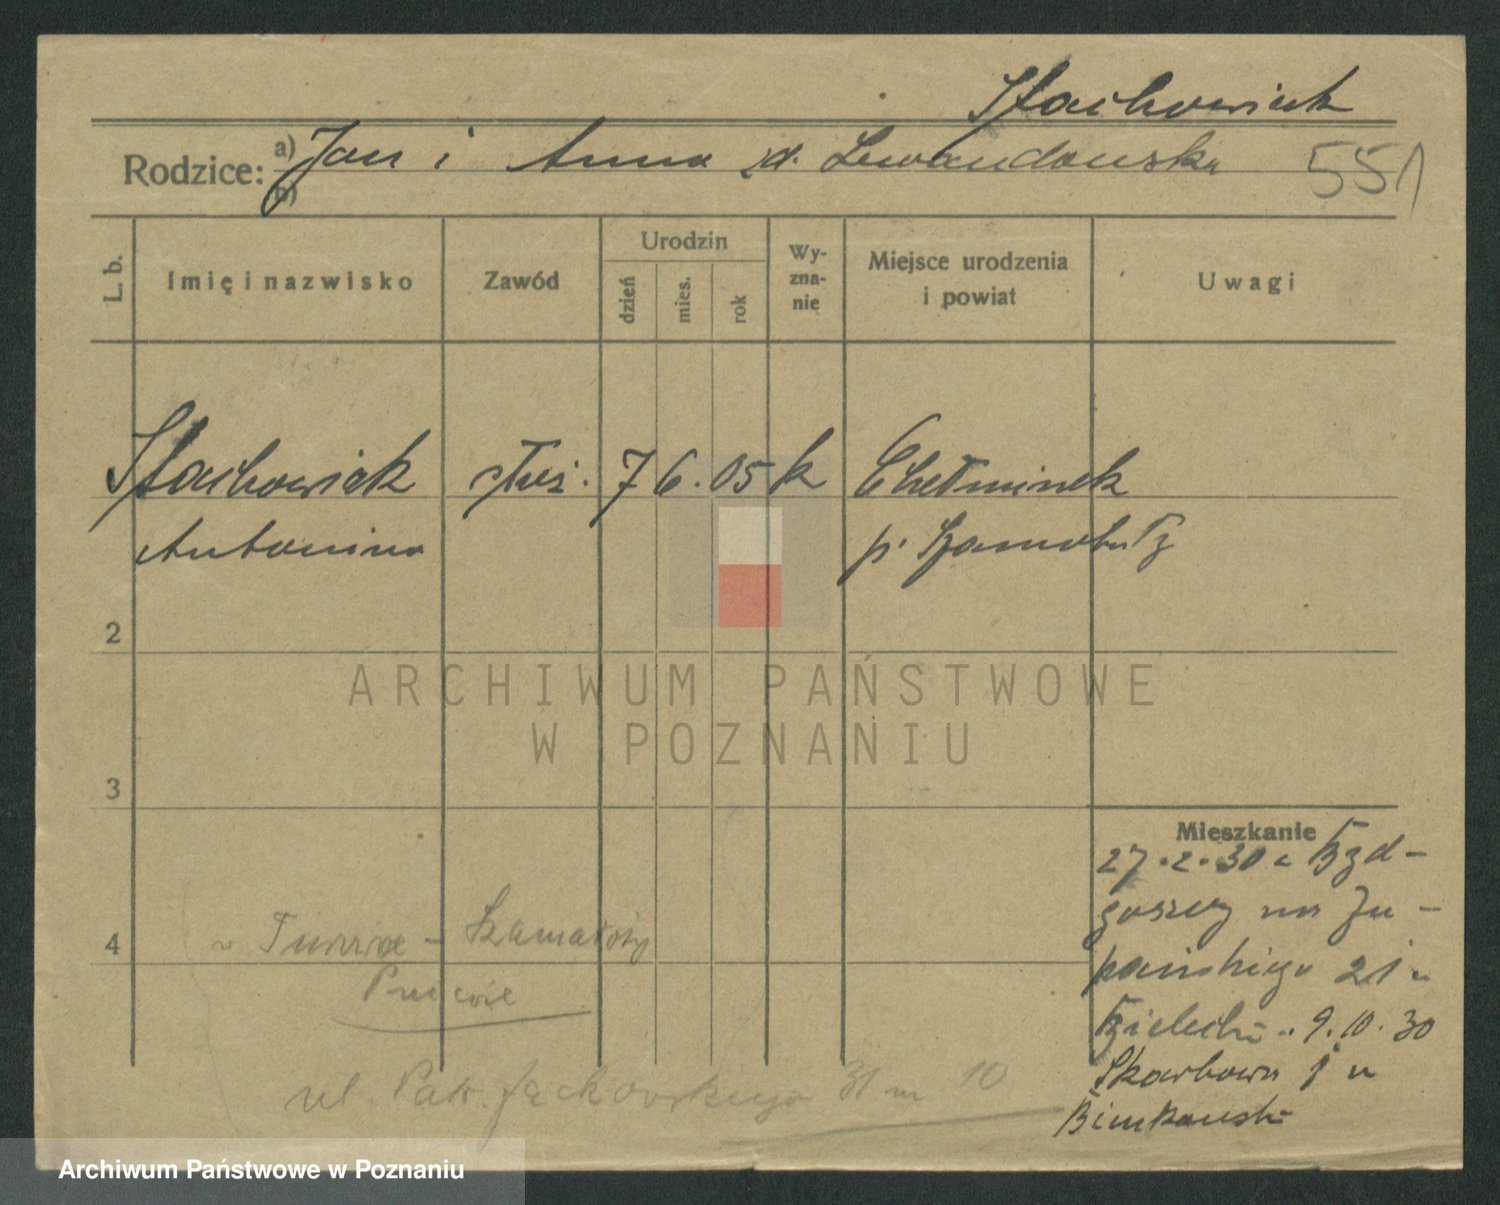 Stachowiak
Rodzice: a) Jan i Anna d. Lewandowska 551
b)
L. b.
Imię i nazwisko
Zawód
Urodzin
dzień
mies.
rok
Wy-
zna-
nie
Miejsce urodzenia
i powiat
Uwagi
Stachowiak służ. 7 6. 05 k Chełminek
Antonina p. Szamotuły
2
ARCHIWUM PAŃSTWOWE
W POZNANIU
3
Mieszkanie
27.2.30 z Byd-
goszczy na Żu-
pańskiego 21 u
4
Szamotuły
9.10.30
Skarbowa 1 u
ul. Patr. Jackowskiego 31 m 10
Bimkowski
Archiwum Państwowe w Poznaniu